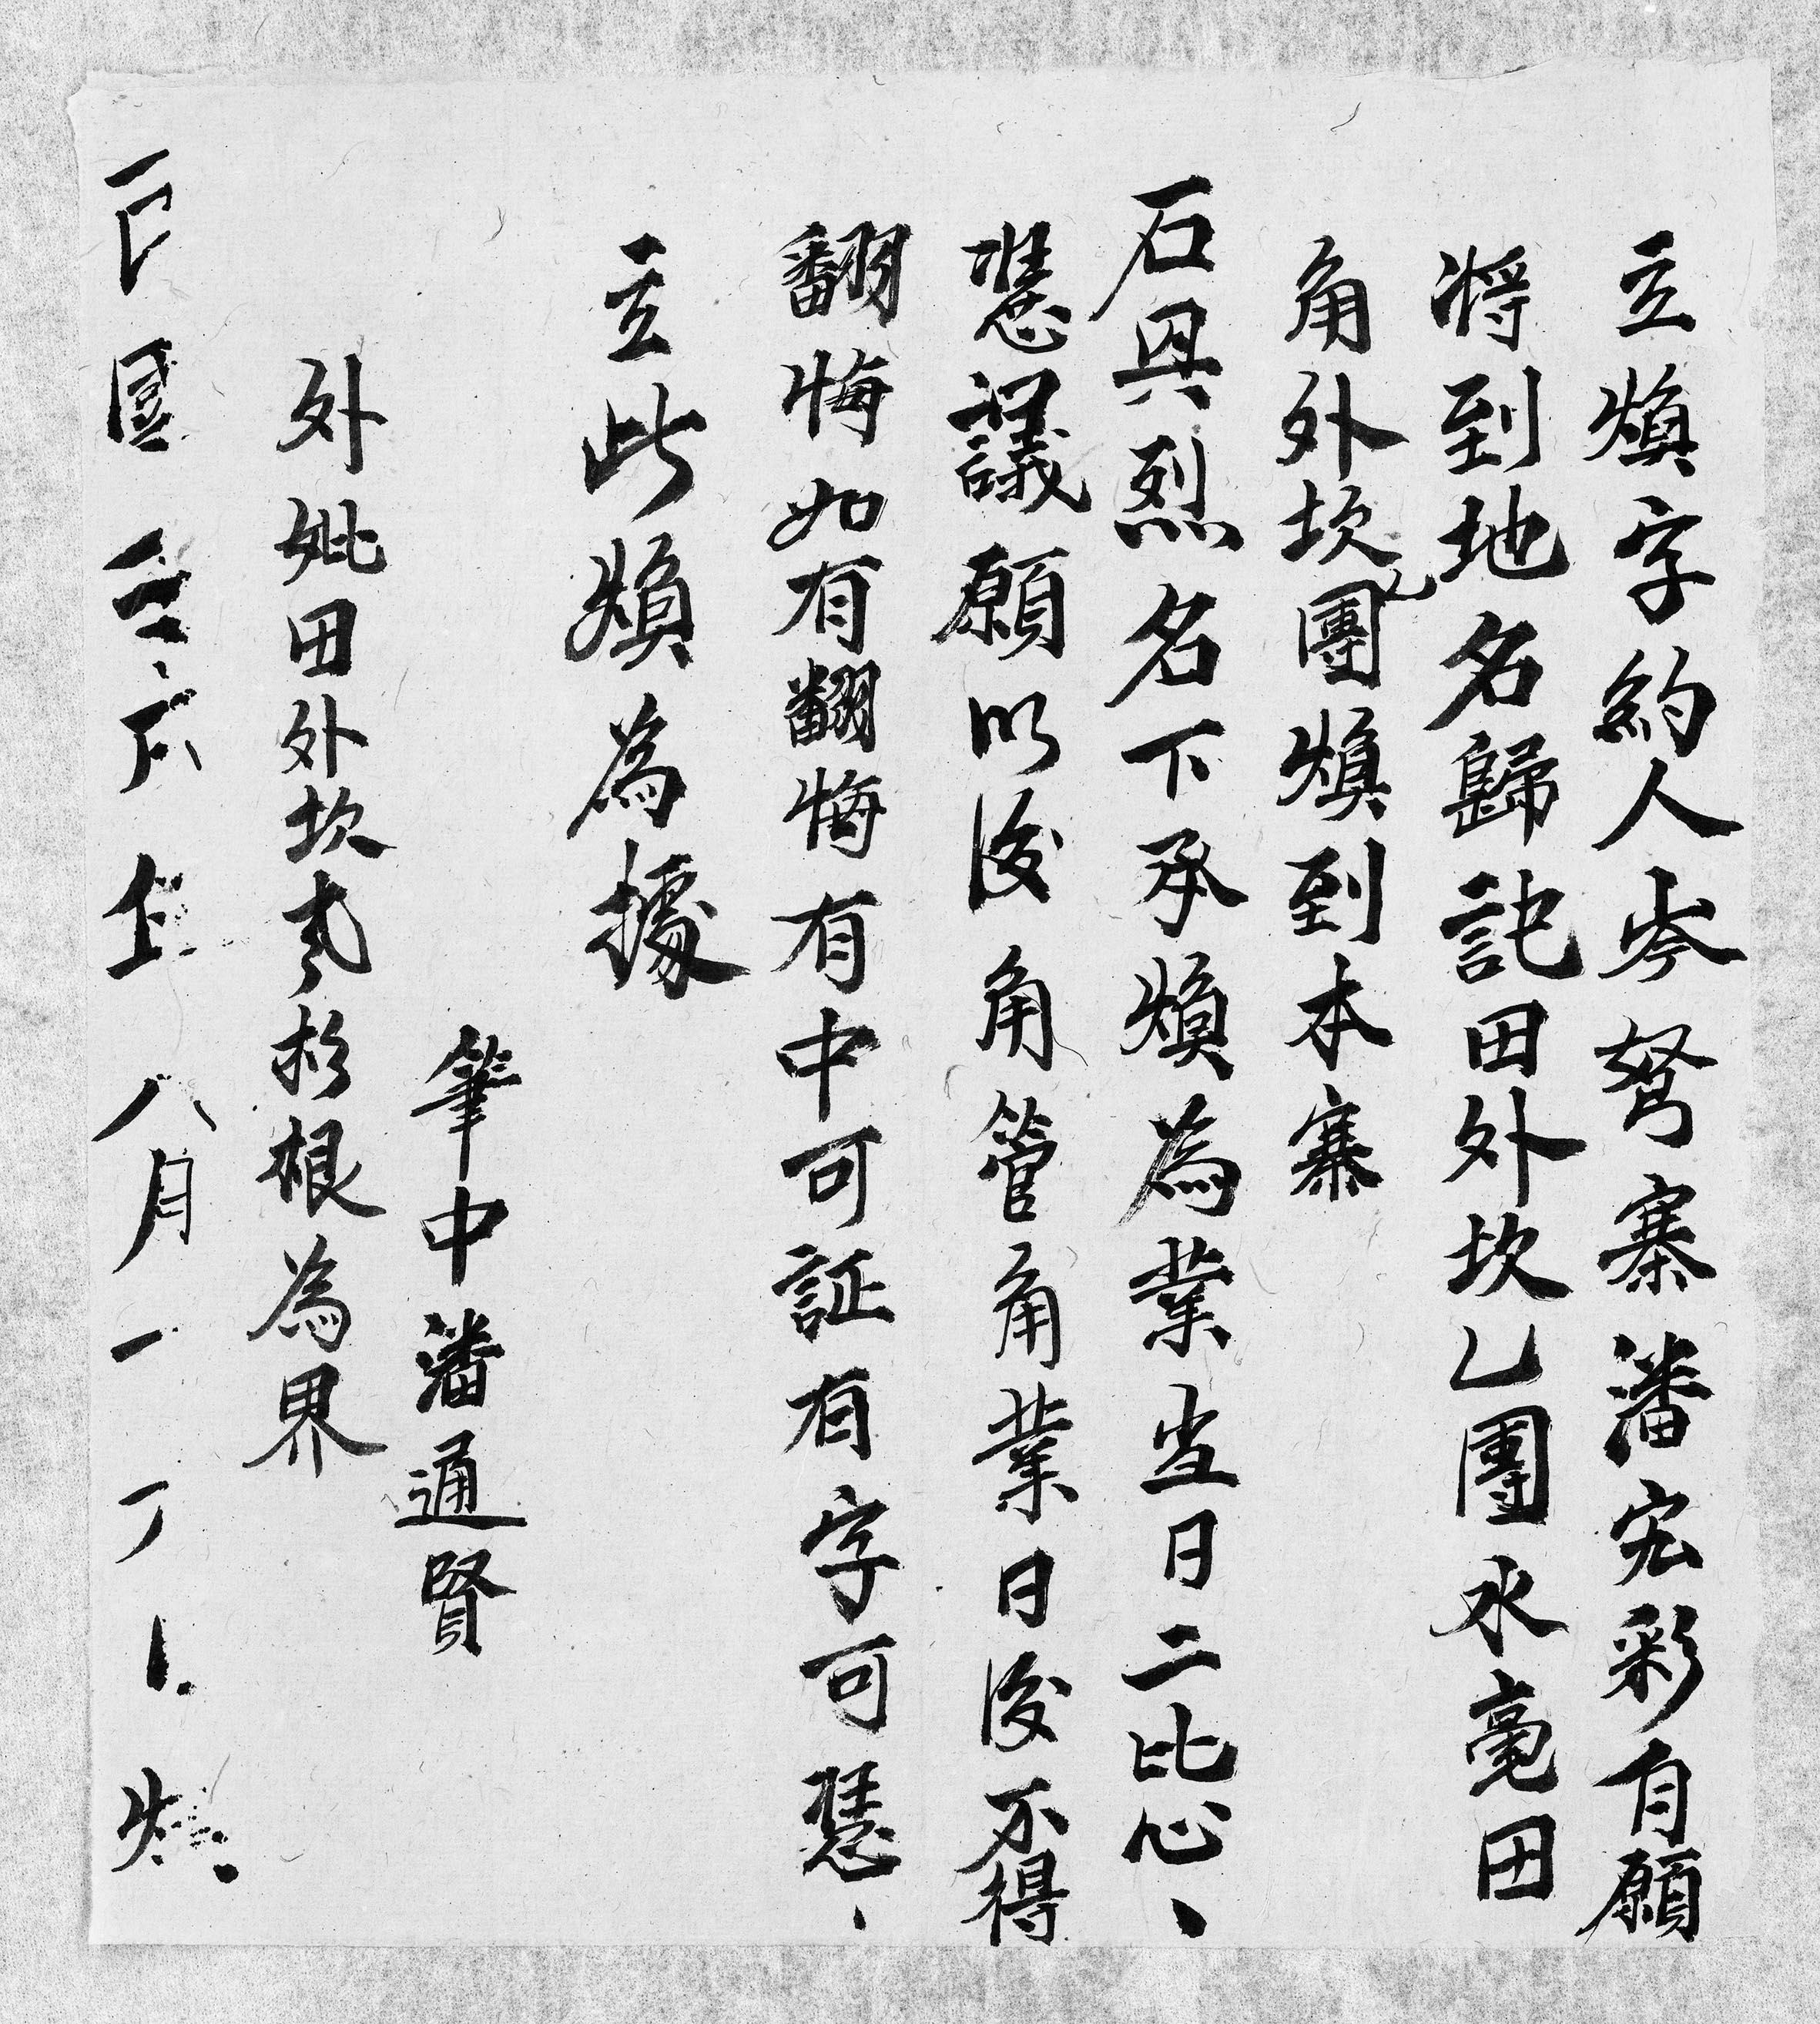 立煥字約人岑孥寨潘宏彩自願
將到地名歸訑田外坎乙團水毫田
角外坎乙團煥到本寨
石具烈名下承煥為業当日二比心、
議願以後角管角業日後不得
翻悔如有翻悔有中可証有字可、
立此煥為據
筆中潘通賢
外妣田外坎贰杉根為界
國 八月